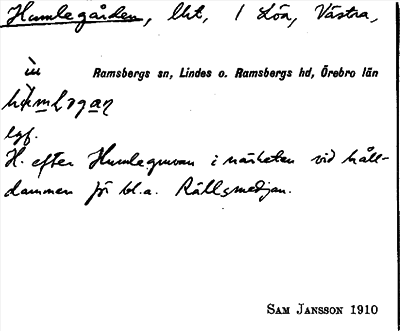 Humlegården, lht, 1 Löa, Västra,
Ramsbergs sn, Lindes o. Ramsbergs hd, Örebro län
lgf.
H. efter Humlegruvan i närheten vid håll-
dammen för bl.a. Rällsmedjan.
SAM JANSSON 1910